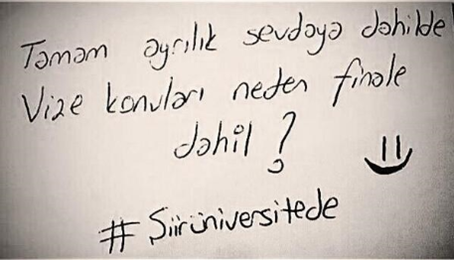 Tamam ayrılık sevdaya dahilde
Vize konuları neden finale
dahil?
#Şiirüniversitede